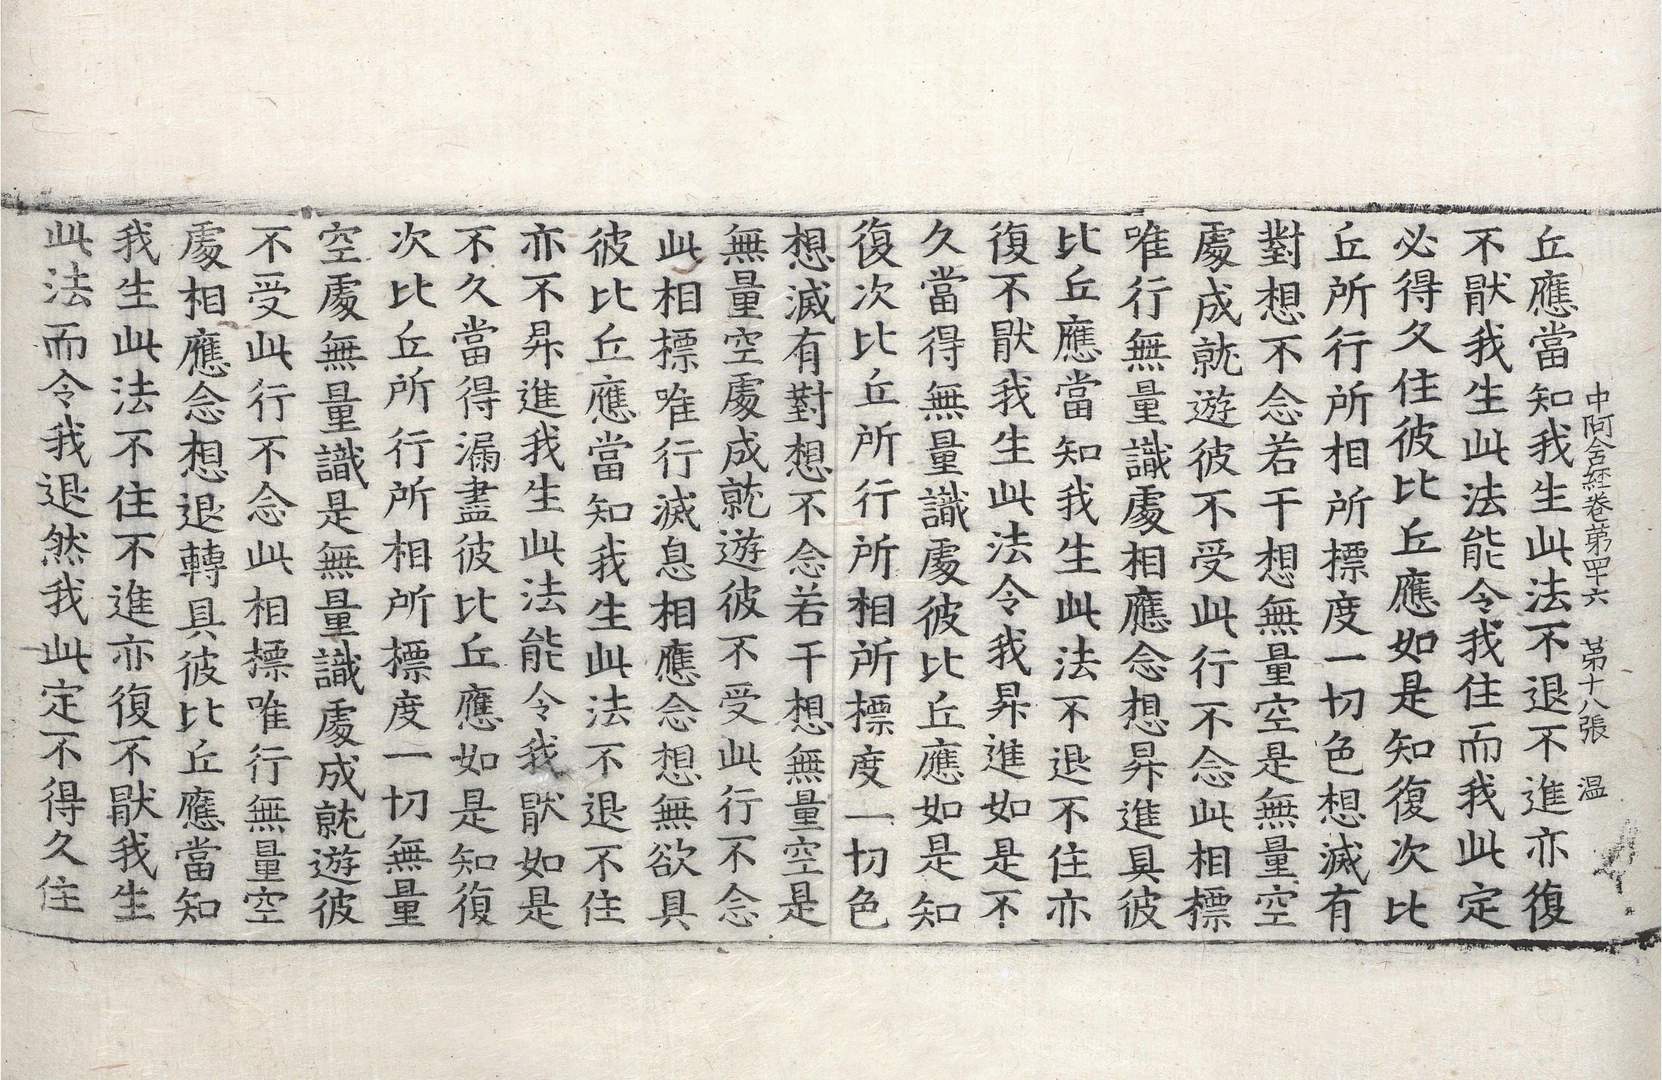 中阿含經卷第四十六 第十八張 温
丘應當知我生此法不退不進亦復
不猒我生此法能令我住而我此定
必得久住彼比丘應如是知復次比
丘所行所相所標度一切色想滅有
對想不念若干想無量空是無量空
處成就遊彼不受此行不念此相標
唯行無量識處相應念想昇進具彼
比丘應當知我生此法不退不住亦
復不猒我生此法令我昇進如是不
久當得無量識處彼比丘應如是知
復次比丘所行所相所標度一切色
想滅有對想不念若干想無量空是
無量空處成就遊彼不受此行不念
此相標唯行滅息相應念想無欲具
彼比丘應當知我生此法不退不住
亦不昇進我生此法能令我猒如是
不久當得漏盡彼比丘應如是知復
次比丘所行所相所標度一切無量
空處無量識是無量識處成就遊彼
不受此行不念此相標唯行無量空
處相應念想退轉具彼比丘應當知
我生此法不住不進亦復不猒我生
此法而令我退然我此定不得久住